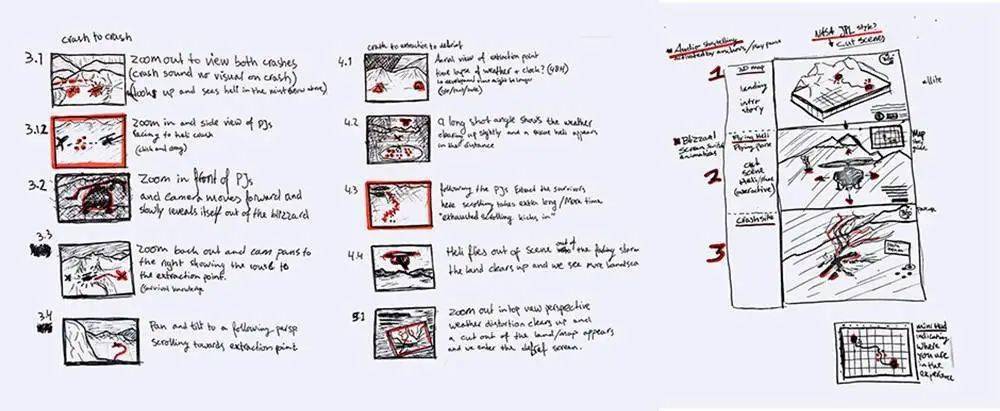 crash to crash
3.1
Zoom out to view both crashes
(crash sound no visual on crash)
looks up and sees heli in the mist
3.12
Zoom in and side view of PJs
facing to heli crash
(click and drag)
3.2
Zoom in front of PJs
and camera moves forward and
slowly reveals itself out of the blizzard
3.3
Zoom back out and cam pans to
the right showing the route to
the extraction point.
(survival knowledge)
3.4
Pan and tilt to a following persp
scrolling towards extraction point
crash to extraction to debrief
4.1
Aerial view of extraction point
time lapse of weather + clock? (48H)
4.2
a long shot angle shows the weather
clearing up slightly and a heli appears
in the distance
4.3
following the PJs the survivors
here scrolling takes extra long/More time
"exhausted scrolling kicks in"
4.4
Heli flies out of scene out of the fading storm
the land clears up and we see more landsca
5.1
zoom out in top view perspective
weather distortion clears up and
a cut out of the land/map appears
and we enter the debrief screen.
NASA JPL style?
cut scenes
Audio storytelling
1
3D map
landing
intro
story
Blizzard
animations
2
Flying Heli
scene
(interactive)
Map
3
Crash site
mini map
indicating
where
you are
in the
experience